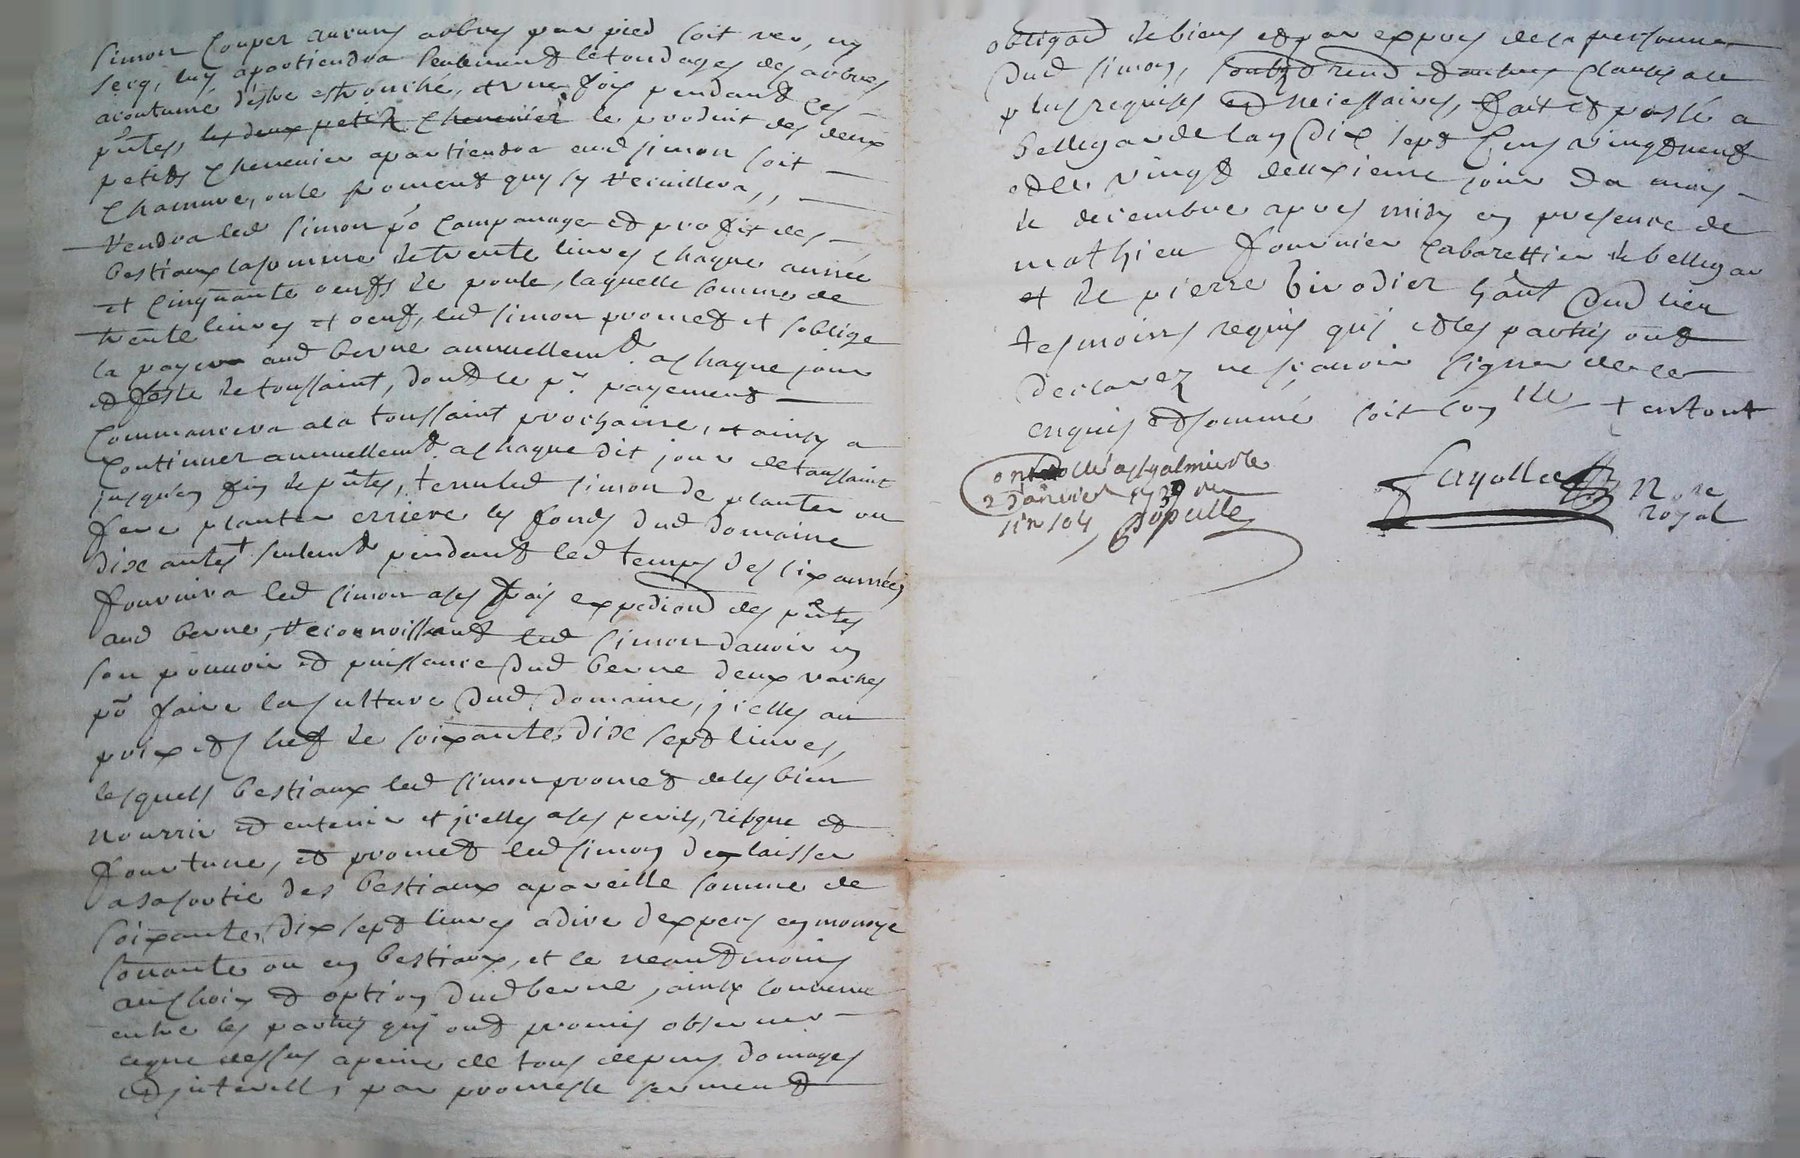 simon couper aucuns arbres par pied soit verd, ny
secq, luy apartiendra seulement letondages des arbres
acoutumé d'estre estronché, et une fois pendant ces
p̃ntes, les deux petits chenevier le produit des deux
petits chenevier apartiendra aud simon soit
chanvre, ou le froment quy sy recuillera,
rendra led simon po͂ campanage et profit des
bestiaux la somme de trente livres chaque année
et cinquante oeufs de poule, laquelle somme de
trente livres et oeufs, led simon promet et soblige
la payer aud berne annuellem̃t a chaque jour
et feste de toussaint, dont le pr payement
commancera a la toussaint prochaine, et ainsy a
continuer annuellem̃t a chaque dit jour de toussaint
jusqu'en fin de p̃ntes, tenu led simon de planter ou
fere planter errière les fonds dud domaine
dix antes + seulem̃t pendant led temps des six années
fournira led simon a ses frais expediond des p̃ntes
aud berne, reconnoissant led simon davoir en
son pouvoir et puissance dud berne deux vaches
po͂ faire la culture dud domaine, jcelles au
prix et chef de soixante dix sept livres,
lesquels bestiaux led simon promet de les bien
nourrir et entenir et jcelles a ses perils, risque et
fourtune, et promet led simon den laisser
a sa sortie des bestiaux a pareille somme de
soixante dix sept livres a dire dexpers en monoye
sonante ou en bestiaux, et ce neantmoins
au choix et option dud berne, ainsy convenu
entre les parties quy ont promis observer
ce que dessus a peine de tous depens domages
et jnterestz, par promesse serment
obligaõn de biens et par expres de sa personne
dud simon, soubz et rend et autres clauses a ce
plus requises et necessaires, fait et passé a
bellegarde lan dix sept cens vingt neuf
et le vingt deuxieme jour du mois
de decembre apres midy en presence de
mathieu fournier cabarettier de bellegar
et de pierre birodier hãnt dud lieu
tesmoins requis quy et les parties ont
declarez ne sçavoir signer de ce
enquis et sommé soit con lle + entout
Controllé a st galmier le
2 janvier 1730 vu
fayolle Nore
royal